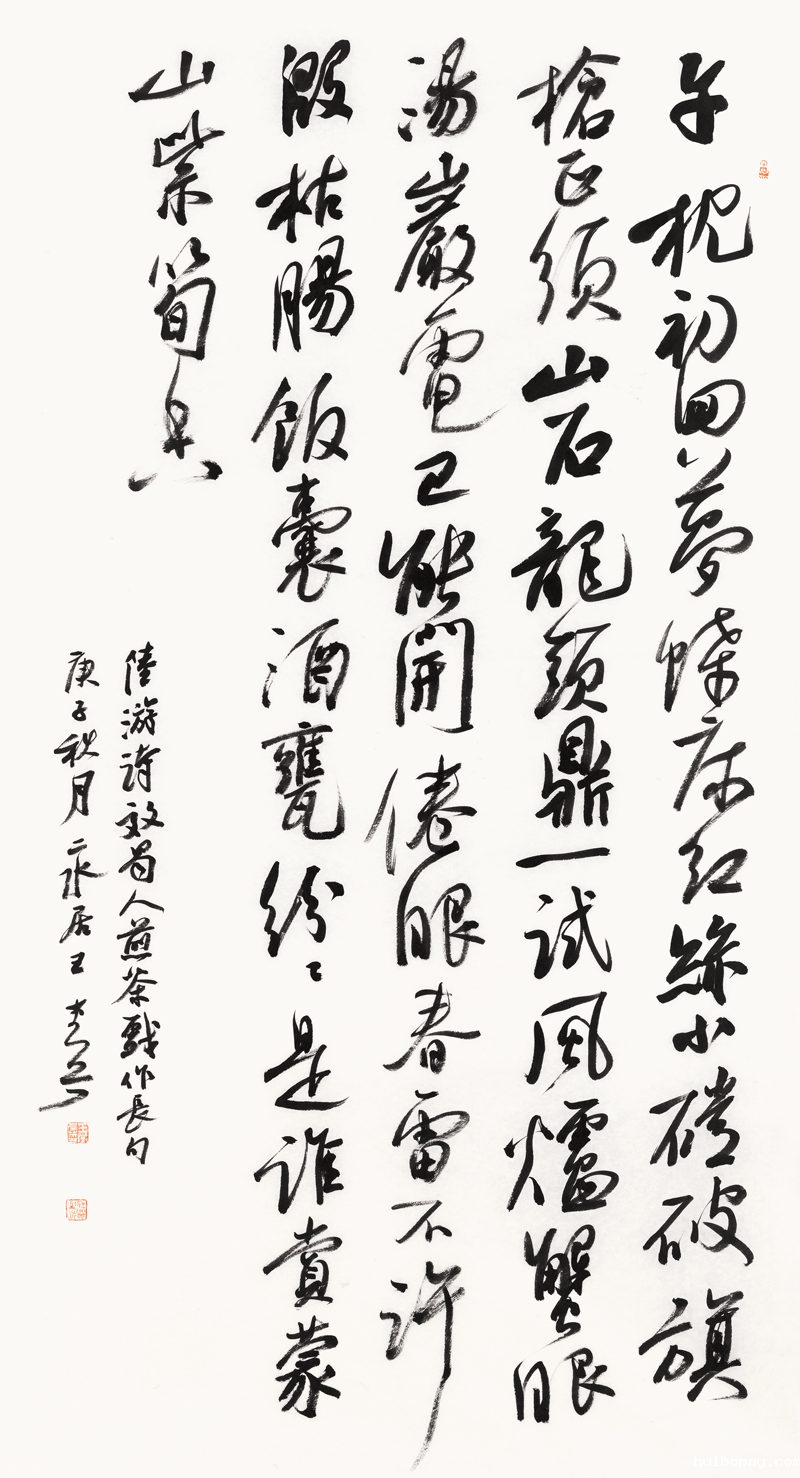 午枕初回夢蝶床紅絲小磑破旗
槍正須山石龍頭鼎一試風爐蟹眼
湯巖電已能開倦眼春雷不許
殷枯腸飯囊酒甕紛〻是誰賞蒙
山紫筍香
陸游詩效蜀人煎茶戲作長句
庚子秋月居王